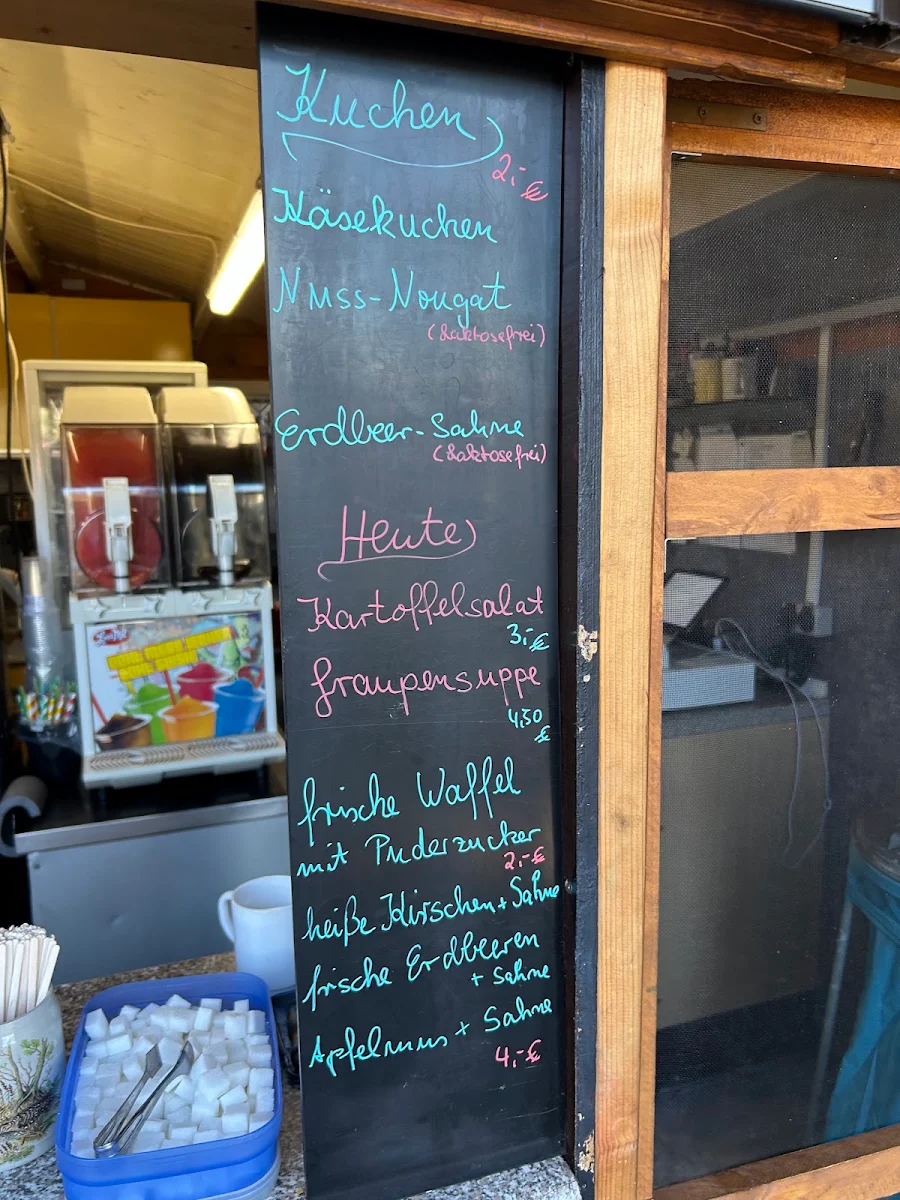 Kuchen
2,- €
Käsekuchen
Nuss-Nougat
(Laktosefrei)
Erdbeer-Sahne
(Laktosefrei)
Heute
Kartoffelsalat
3,- €
Graupensuppe
4,50
€
frische Waffel
mit Puderzucker
2,- €
heiße Kirschen + Sahne
frische Erdbeeren
+ Sahne
Apfelmus + Sahne
4,- €